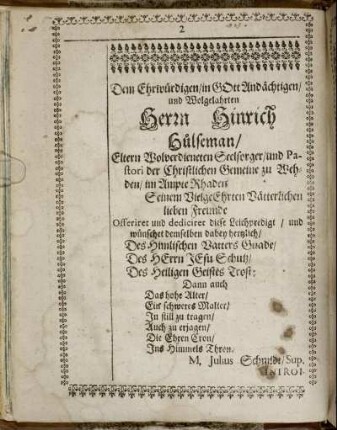 2
Dem Ehrwürdigen/in GOtt Andächtigen/
und Wolgelahrten
Herrn Hinrich
Hülseman/
Eltern Wolverdieneten Seelsorger/und Pa-
stori der Christlichen Gemeine zu Weh-
den/ im Ampte Rhaden
Seinem VielgeEhrten Vätterlichen
lieben Freunde
Offeriret und dediciret diese Leichpredigt / und
wünschet demselben dabey hertzlich/
Des Himlischen Vatters Gnade/
Des HErrn JEsu Schutz/
Des Heiligen Geistes Trost:
Dann auch
Das hohe Alter/
Ein schweres Malter/
In still zu tragen/
Auch zu erjagen/
Die Ehren Cron/
Ins Himmels Thron.
M. Julius Schmidt/Sup.
INTROI-